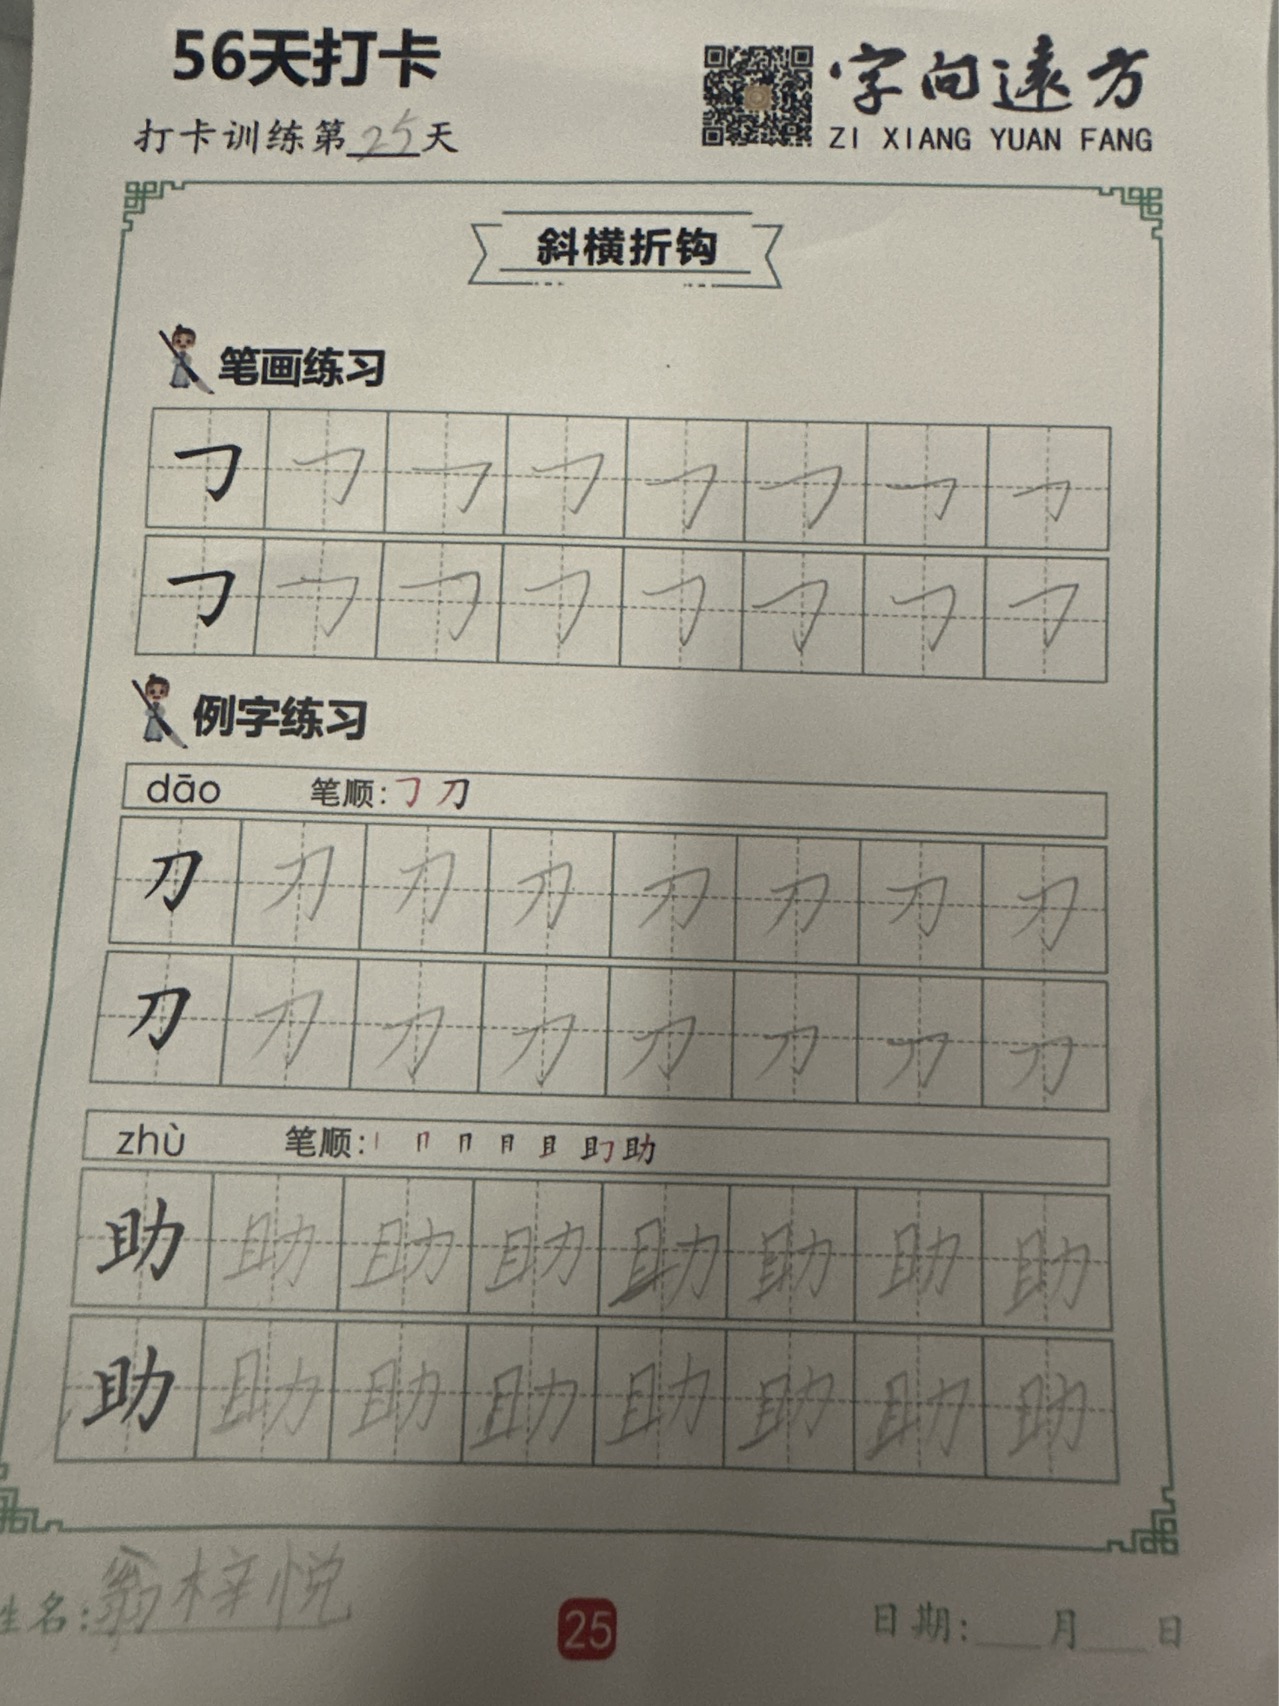 56天打卡
字向遠方
打卡训练第25天
ZI XIANG YUAN FANG
斜横折钩
笔画练习
㇆ ㇆ ㇆ ㇆ ㇆ ㇆ ㇆ ㇆
㇆ ㇆ ㇆ ㇆ ㇆ ㇆ ㇆ ㇆
例字练习
dāo 笔顺:㇆ 刀
刀 刀 刀 刀 刀 刀 刀 刀
刀 刀 刀 刀 刀 刀 刀 刀
zhù 笔顺:丨 冂 月 且 助
助 助 助 助 助 助 助 助
助 助 助 助 助 助 助 助
生名:翁梓悦
25
日期:___月___日